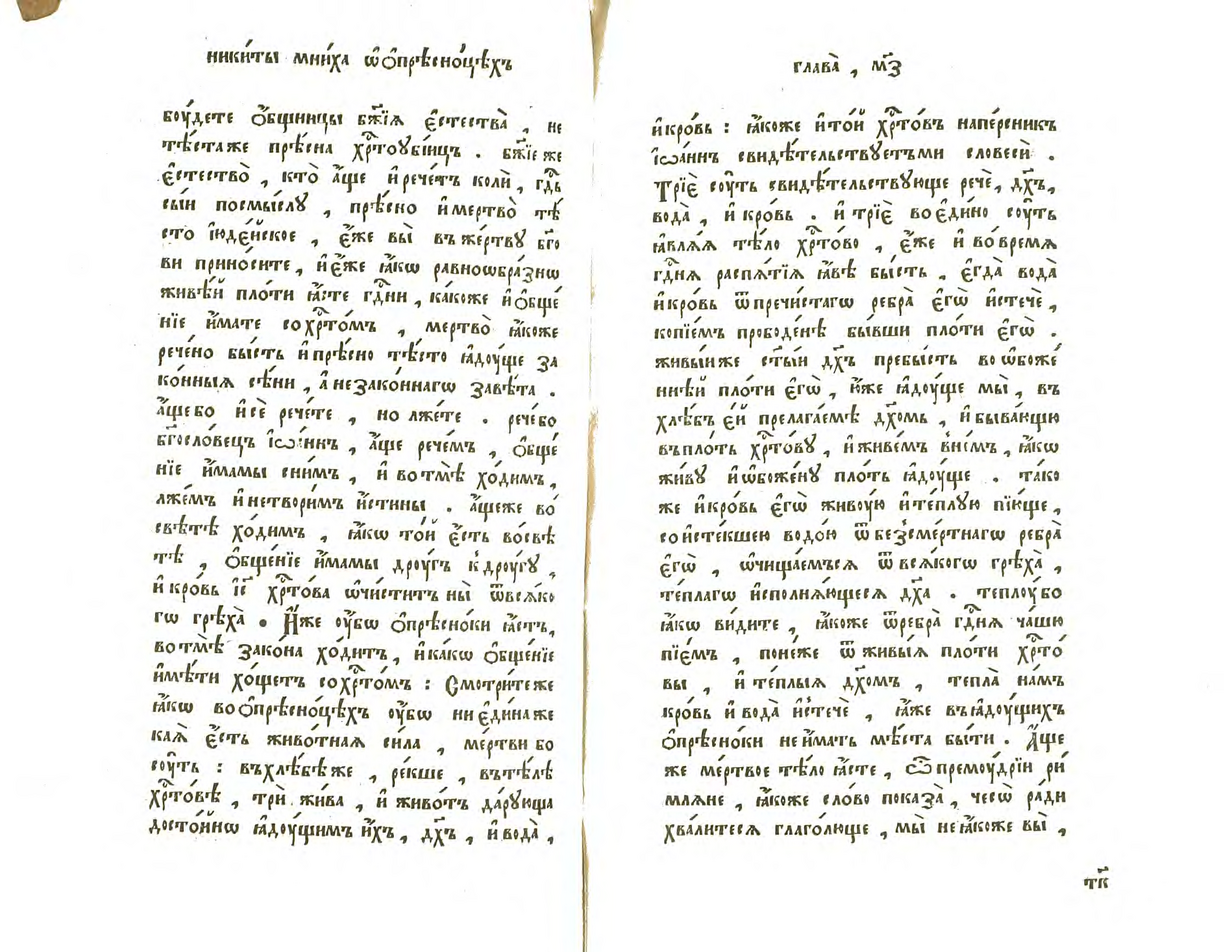 никѝты мни́ха ѡ҆ ѻ҆прѣсно́цѣхъ
боу́дете ѻ҆́бщницы бж҃їѧ є҆стества̀ , не
тѣ́ста же прѣ́сна хрⷭ҇тоубі́ицъ . бж҃їе же
є҆стество̀ , кто̀ а҆́ще и҆ рече́тъ колѝ , гдⷭ҇ь
сы́и по смы́слꙋ , прѣ́сно и҆ мертво̀ тѣ́
сто і҆юде́йское , є҆́же вы̀ въ же́ртвꙋ бг҃о
ви прино́сите , и҆ є҆́же ꙗ҆́кѡ равноѡбра́знѡ
живѣ́й пло́ти ꙗ҆́сте гдⷭ҇ни , ка́коже и҆ ѻ҆бще́
нїе и҆́мате со хрⷭ҇то́мъ , мертво̀ ꙗ҆́коже
рече́но бы́сть и҆ прѣ́сно тѣ́сто ꙗ҆доу́ще за
ко́нныѧ сѣ́ни , а҆ не зако́ннагѡ завѣ́та .
а҆́ще бо и҆ сѐ рече́те , но лже́те . рече́ бо
бг҃осло́вецъ і҆ѡа́ннъ , а҆́ще рече́мъ , ѻ҆бще́
нїе и҆́мамы с ни́мъ , и҆ во тмѣ̀ хо́димъ ,
лже́мъ и҆ не твори́мъ и҆́стины . а҆́ще же во
свѣ́тѣ хо́димъ , ꙗ҆́кѡ то́й є҆́сть во свѣ́
тѣ , ѻ҆бще́нїе и҆́мамы дроу́гъ к дроу́гꙋ ,
и҆ кро́вь і҆с҃ хрⷭ҇то́ва ѡ҆чи́ститъ ны̀ ѿ всѧ́ко
гѡ грѣха̀ . И҆́же оу҆́бѡ ѻ҆прѣсно́ки ꙗ҆́стъ ,
во тмѣ̀ зако́на хо́дитъ , и҆ ка́кѡ ѻ҆бще́нїе
и҆мѣ́ти хо́щетъ со хрⷭ҇то́мъ : Смотри́те же
ꙗ҆́кѡ во ѻ҆прѣсно́цѣхъ оу҆́бѡ ни є҆ди́на же
ка́ѧ є҆́сть живо́тнаѧ си́ла , ме́ртви бо
соу́ть : въ хлѣ́бѣ же , ре́кше , въ тѣ́лѣ
хрⷭ҇то́вѣ , трѝ жи́ва , и҆ живо́тъ да́рꙋюща
досто́йнѡ ꙗ҆доу́щимъ и҆́хъ , дх҃ъ , и҆ вода̀ ,
глава̀ , м҃з
и҆ кро́вь : ꙗ҆́коже и҆ то́й хрⷭ҇то́въ напе́рсникъ
і҆ѡа́ннъ свидѣ́тельствꙋетъ ми словесѝ .
Трїѐ соу́ть свидѣ́тельствꙋюще речѐ , дх҃ъ ,
вода̀ , и҆ кро́вь . и҆ трїѐ во є҆ди́но соу́ть
ꙗ҆влѧ́ѧ тѣ́ло хрⷭ҇то́во , є҆́же и҆ во вре́мѧ
гдⷭ҇нѧ распѧ́тїѧ ꙗ҆́вѣ бы́сть , є҆гда̀ вода̀
и҆ кро́вь ѿ пречи́стагѡ ребра̀ є҆гѡ̀ и҆стечѐ ,
копїе́мъ прободе́нѣ бы́вши пло́ти є҆гѡ̀ .
живы́и же ст҃ы́и дх҃ъ пребы́сть во ѡ҆боже́
ннѣ́й пло́ти є҆гѡ̀ , ю҆́же ꙗ҆доу́ще мы̀ , въ
хлѣ́бъ є҆́й прелага́емѣ дх҃омь , и҆ быва́ющю
въ пло́ть хрⷭ҇то́вꙋ , и҆ живе́мъ в не́мъ , ꙗ҆́кѡ
жи́вꙋ и҆ ѡ҆бо́женꙋ пло́ть ꙗ҆доу́ще . та́ко
же и҆ кро́вь є҆гѡ̀ живоу́ю и҆ те́плꙋю пїю́ще ,
со и҆сте́кшею водо́ю ѿ безсме́ртнагѡ ребра̀
є҆гѡ̀ , ѡ҆чища́емъсѧ ѿ всѧ́когѡ грѣха̀ ,
те́плагѡ и҆сполнѧ́ющесѧ дх҃а . теплоу́ бо
ꙗ҆́кѡ ви́дите , ꙗ҆́коже ѿ ребра̀ гдⷭ҇нѧ ча́шю
пїе́мъ , поне́же ѿ живы́ѧ пло́ти хрⷭ҇то́
вы , и҆ те́плыѧ дх҃омъ , тепла̀ на́мъ
кро́вь и҆ вода̀ и҆стечѐ , ꙗ҆́же въ ꙗ҆доу́щихъ
ѻ҆прѣсно́ки не и҆́мать мѣ́ста бы́ти . А҆́ще
же ме́ртвое тѣ́ло ꙗ҆́сте , ѽ премоу́дрїи ри́
млѧне , ꙗ҆́коже сло́во показа̀ , чесѡ̀ ра́ди
хва́литесѧ глаго́люще , мы̀ не ꙗ҆́коже вы̀ ,
тк҃